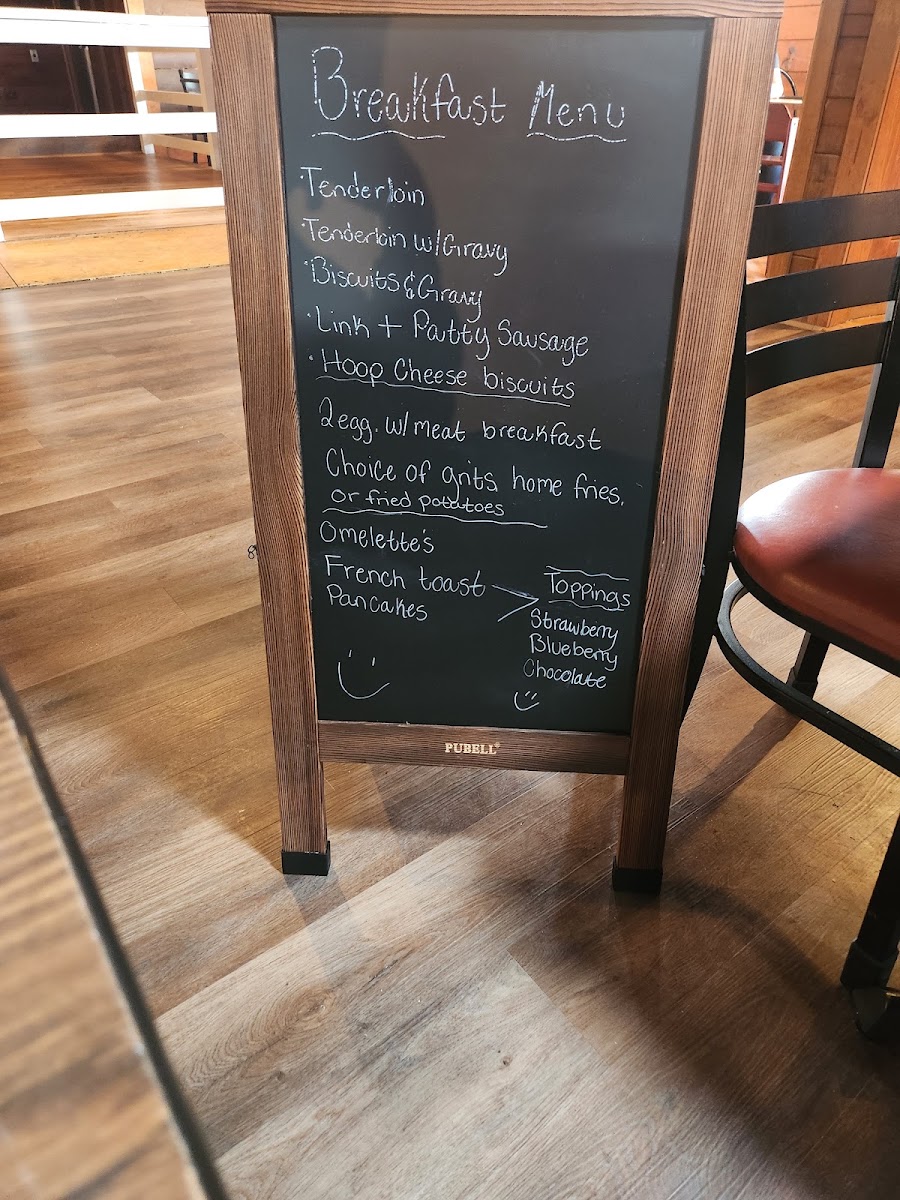 Breakfast Menu
·Tenderloin
·Tenderloin w/Gravy
·Biscuits & Gravy
·Link + Patty Sausage
·Hoop Cheese biscuits
2egg. w/meat breakfast
Choice of grits, home fries,
or fried potatoes
Omelette's
French toast
Pancakes
Toppings
Strawberry
Blueberry
Chocolate
PUBELL®